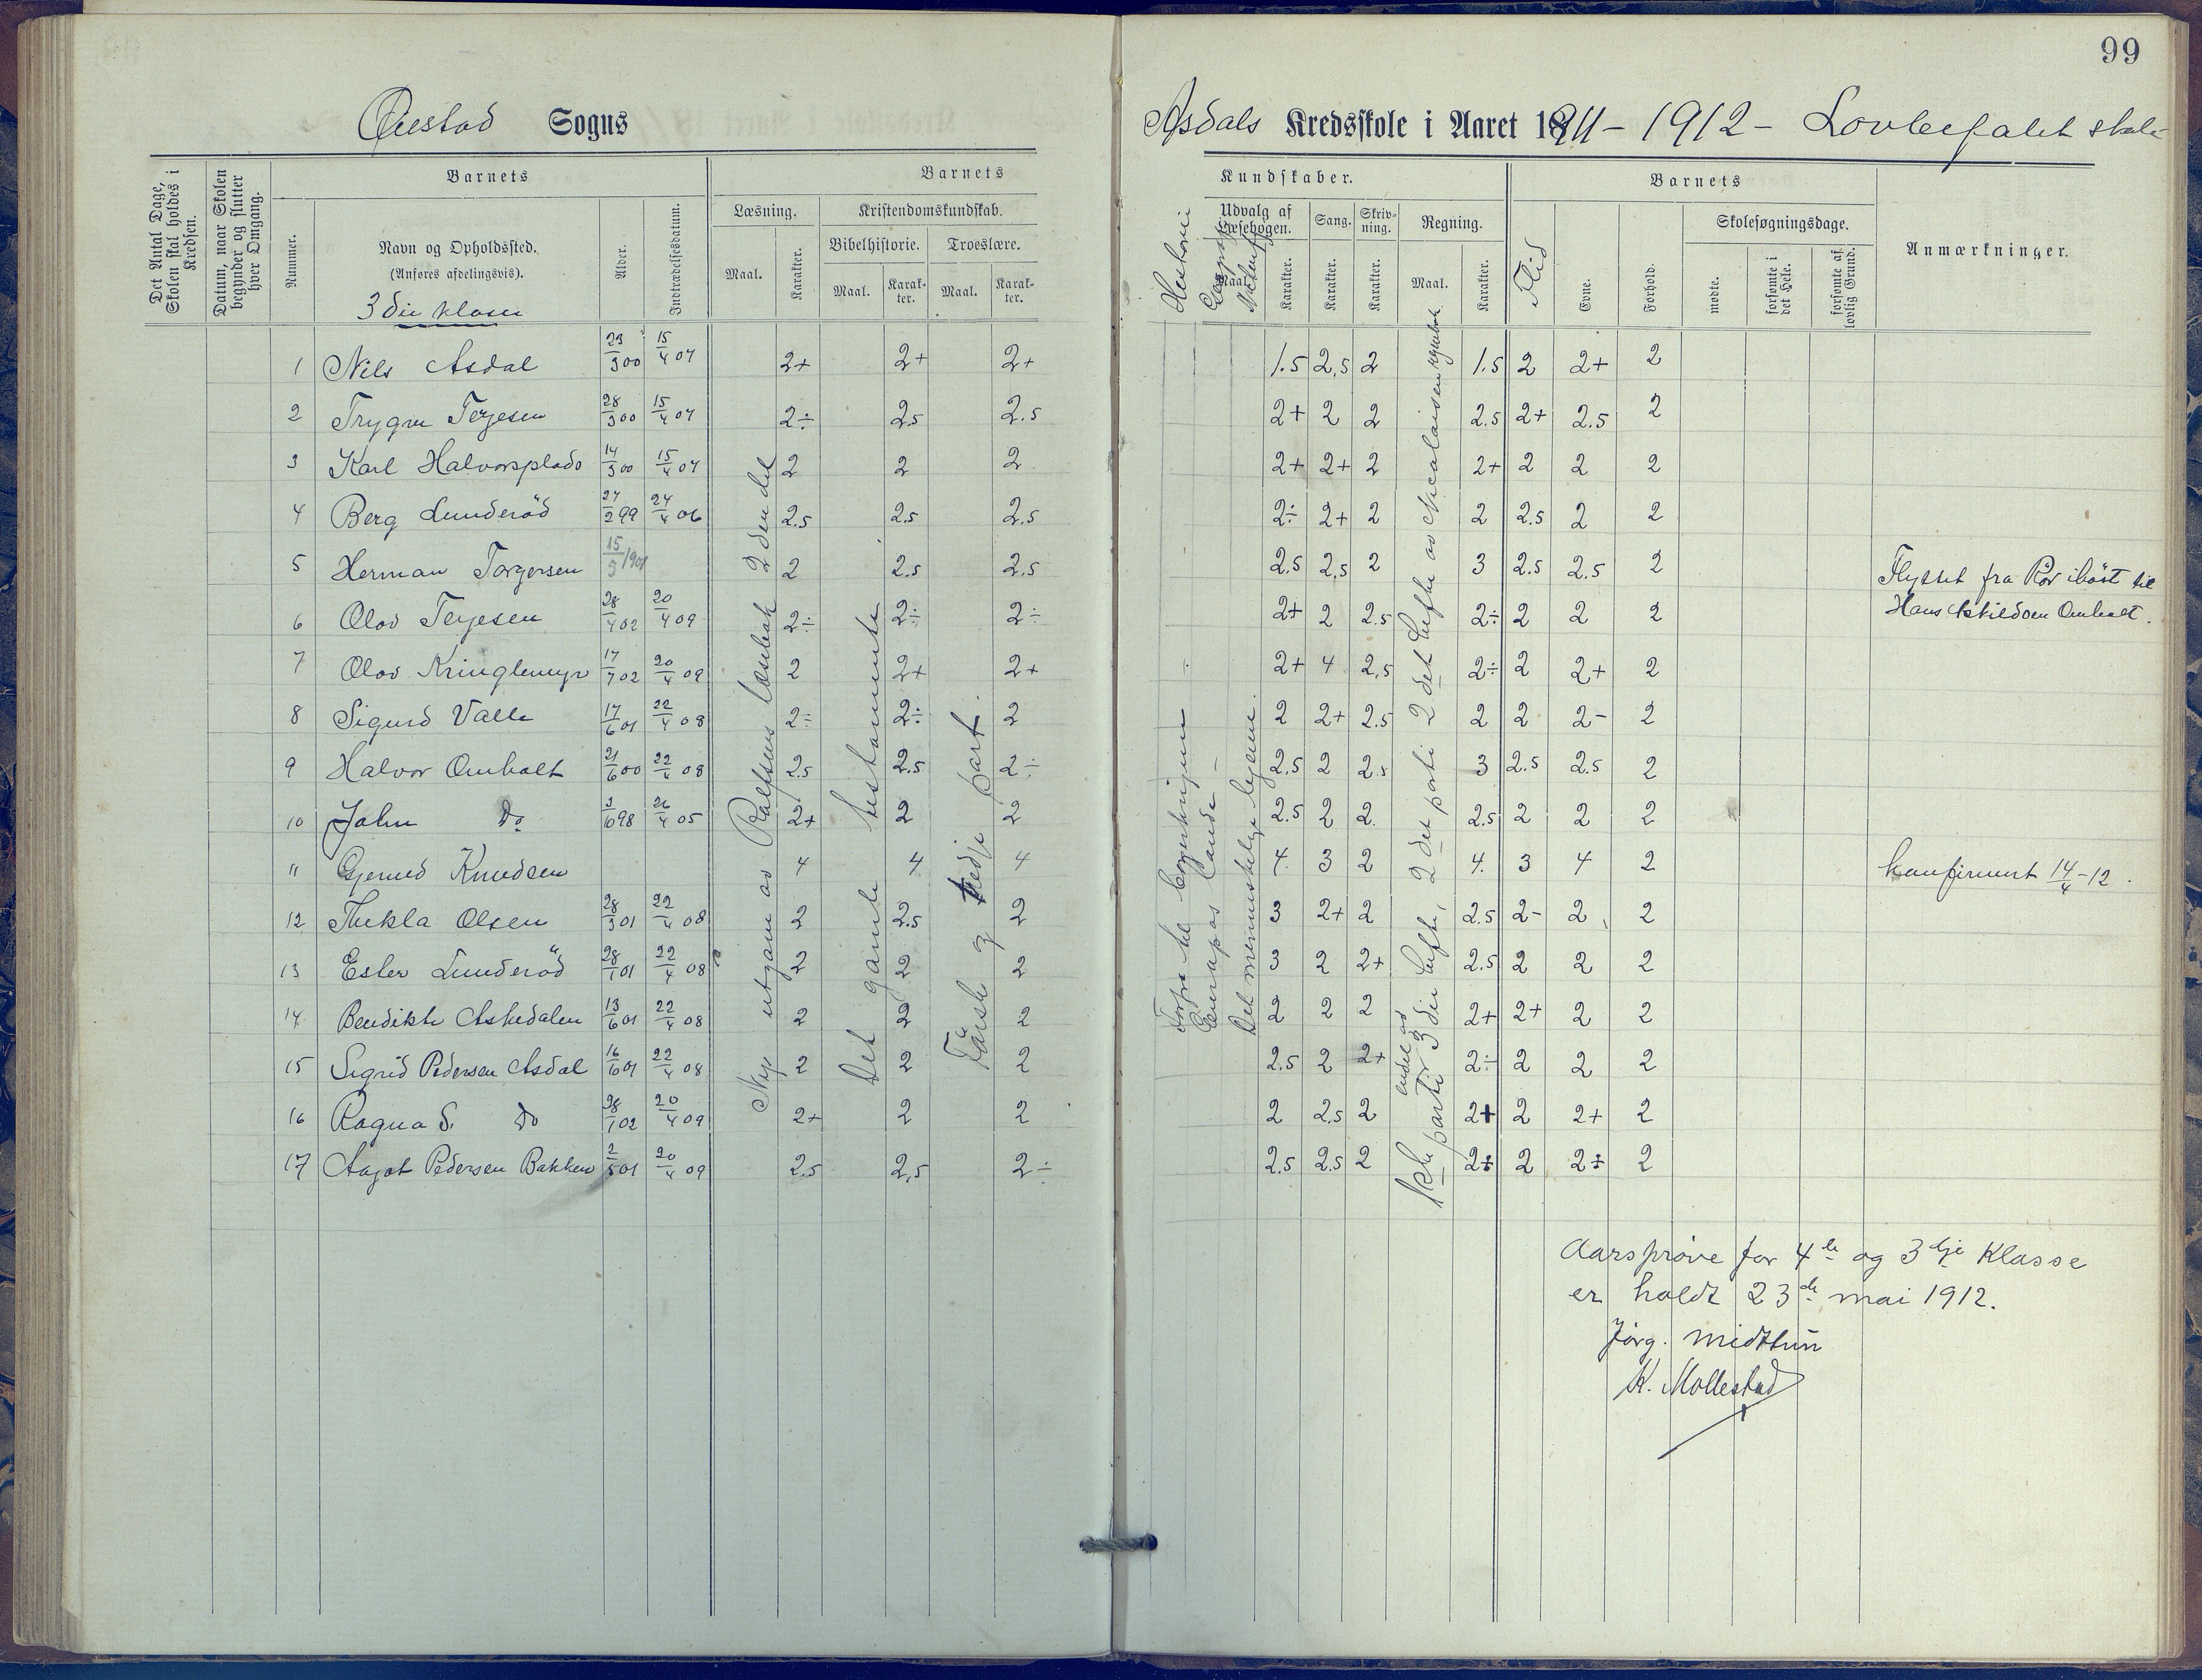 99
Øiestad Sogns
Asdals Kredsskole i Aaret 1911 - 1912 - Lovbefalet skole
Det Antal Dage, Skolen skal holdes i Kredsen.
Datum, naar Skolen begynder og slutter hver Omgang.
Barnets
Nummer.
Navn og Opholdssted.
(Anføres afdelingsvis).
3die klasse
Alder.
Indtrædelsesdatum.
Barnets
Læsning.
Maal.
Karakter.
Kristendomskundskab.
Bibelhistorie.
Maal.
Karakter.
Troeslære.
Maal.
Karakter.
Kundskaber.
Historie
Geografi
Naturf
Udvalg af Læsebogen.
Maal.
Karakter.
Sang.
Karakter.
Skrivning.
Karakter.
Regning.
Maal.
Karakter.
Barnets
Flid
Evne.
Forhold.
Skolesøgningsdage.
mødte.
forsømte i det Hele.
forsømte af lovlig Grund.
Anmærkninger.
1 Nils Asdal 23/3 00 15/4 07 2+ 2+ 2+ 1.5 2,5 2 1.5 2 2+ 2
2 Trygve Terjesen 28/3 00 15/4 07 2÷ 2.5 2.5 2+ 2 2 2.5 2+ 2.5 2
3 Karl Halvorsplads 14/3 00 15/4 07 2 2 2 2+ 2+ 2 2+ 2 2 2
4 Berg Lunderöd 27/2 99 24/4 06 2.5 2.5 2.5 2÷ 2+ 2 2 2.5 2 2
5 Herman Torgersen 15/5 1901 2 2.5 2.5 2.5 2,5 2 3 2.5 2.5 2 Flyttet fra Rör iböst til
Hans Eskildsen Omholt.
6 Olav Terjesen 28/4 02 20/4 09 2÷ 2÷ 2÷ 2+ 2 2.5 2÷ 2 2 2
7 Olav Kringlemyr 17/7 02 20/4 09 2 2+ 2+ 2+ 4 2,5 2÷ 2 2+ 2
8 Sigurd Valle 17/6 01 22/4 08 2÷ 2÷ 2 2 2+ 2.5 2 2 2- 2
9 Halvor Omholt 21/6 00 22/4 08 2.5 2.5 2÷ 2.5 2 2.5 3 2.5 2.5 2
10 John Do 3/10 98 26/4 05 2+ 2 2 2.5 2 2. 2.5 2 2 2
" Gjerud Knudsen 4 4 4 4. 3 2 4. 3 4 2 konfirmert 14/4-12.
12 Thekla Olsen 28/3 01 22/4 08 2 2.5 2 3 2+ 2 2.5 2- 2 2
13 Ester Lunderöd 28/1 01 22/4 08 2 2 2 3 2 2+ 2.5 2 2 2
14 Bendikte Askedalen 13/6 01 22/4 08 2 2 2 2 2 2 2+ 2+ 2 2
15 Sigrid Pedersen Asdal 16/6 01 22/4 08 2 2 2 2.5 2 2+ 2÷ 2 2 2
16 Ragna S. Do 28/1 02 20/4 09 2+ 2 2 2 2,5 2 2+ 2 2+ 2
17 Aagot Pedersen Bakken 2/5 01 20/4 09 2.5 2,5 2÷ 2.5 2.5 2 2+ 2 2+ 2
Nye utgave av Rolfsens læsebok 2den del
Det gamle testamente
Förste og tredje part.
Europas lande -
Det menneskelige legeme.
1ste parti endel av 3die hefte, 2det parti 2det hefte av Nicolaisens regnebok
Aarsprøve for 4de og 3dje Klasse
er holdt 23de mai 1912.
Jörg. Midttun
K. Mollestad